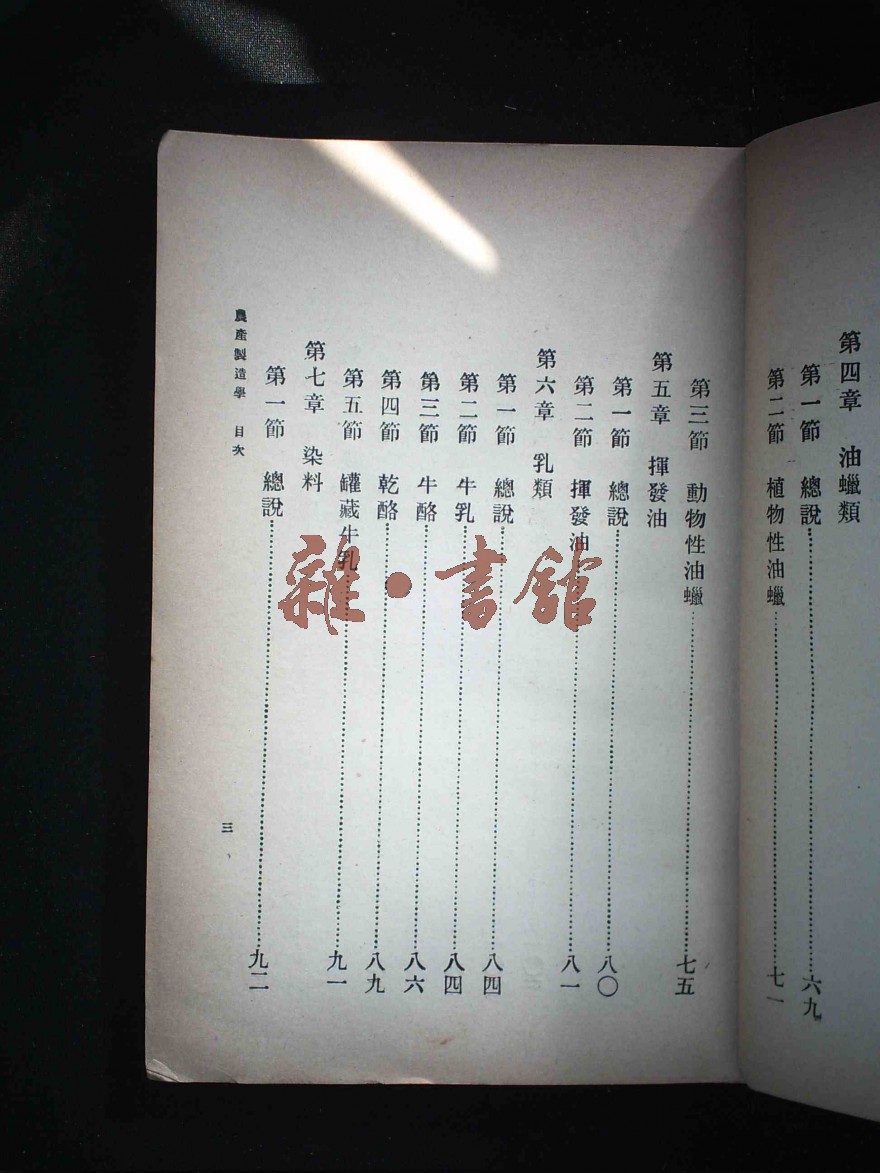 第四章　油蠟類
第一節　總說………六九
第二節　植物性油蠟………七一
第三節　動物性油蠟………七五
第五章　揮發油
第一節　總說………八〇
第二節　揮發油………八一
第六章　乳類
第一節　總說………八四
第二節　牛乳………八四
第三節　牛酪………八六
第四節　乾酪………八九
第五節　罐藏牛乳………九一
第七章　染料
第一節　總說………九二
農產製造學　目次
三
雜·書館